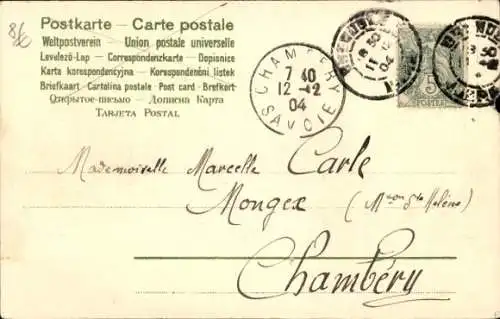 8/6
Postkarte - Carte postale
Weltpostverein - Union postale universelle
Levelező-Lap - Correspondenzkarte - Dopisnice
Karta korespondencyjna - Korespondenční lístek
Briefkaart - Cartolina postale - Post card - Brefkort
Открытое письмо - Дописна Карта
TARJETA POSTAL
CHAMBERY
7 40
12 - 12
04
SAVOIE
5
POSTES
Mademoiselle Marcelle Carle
Mongex (Mson Ste Hélène)
Chambéry